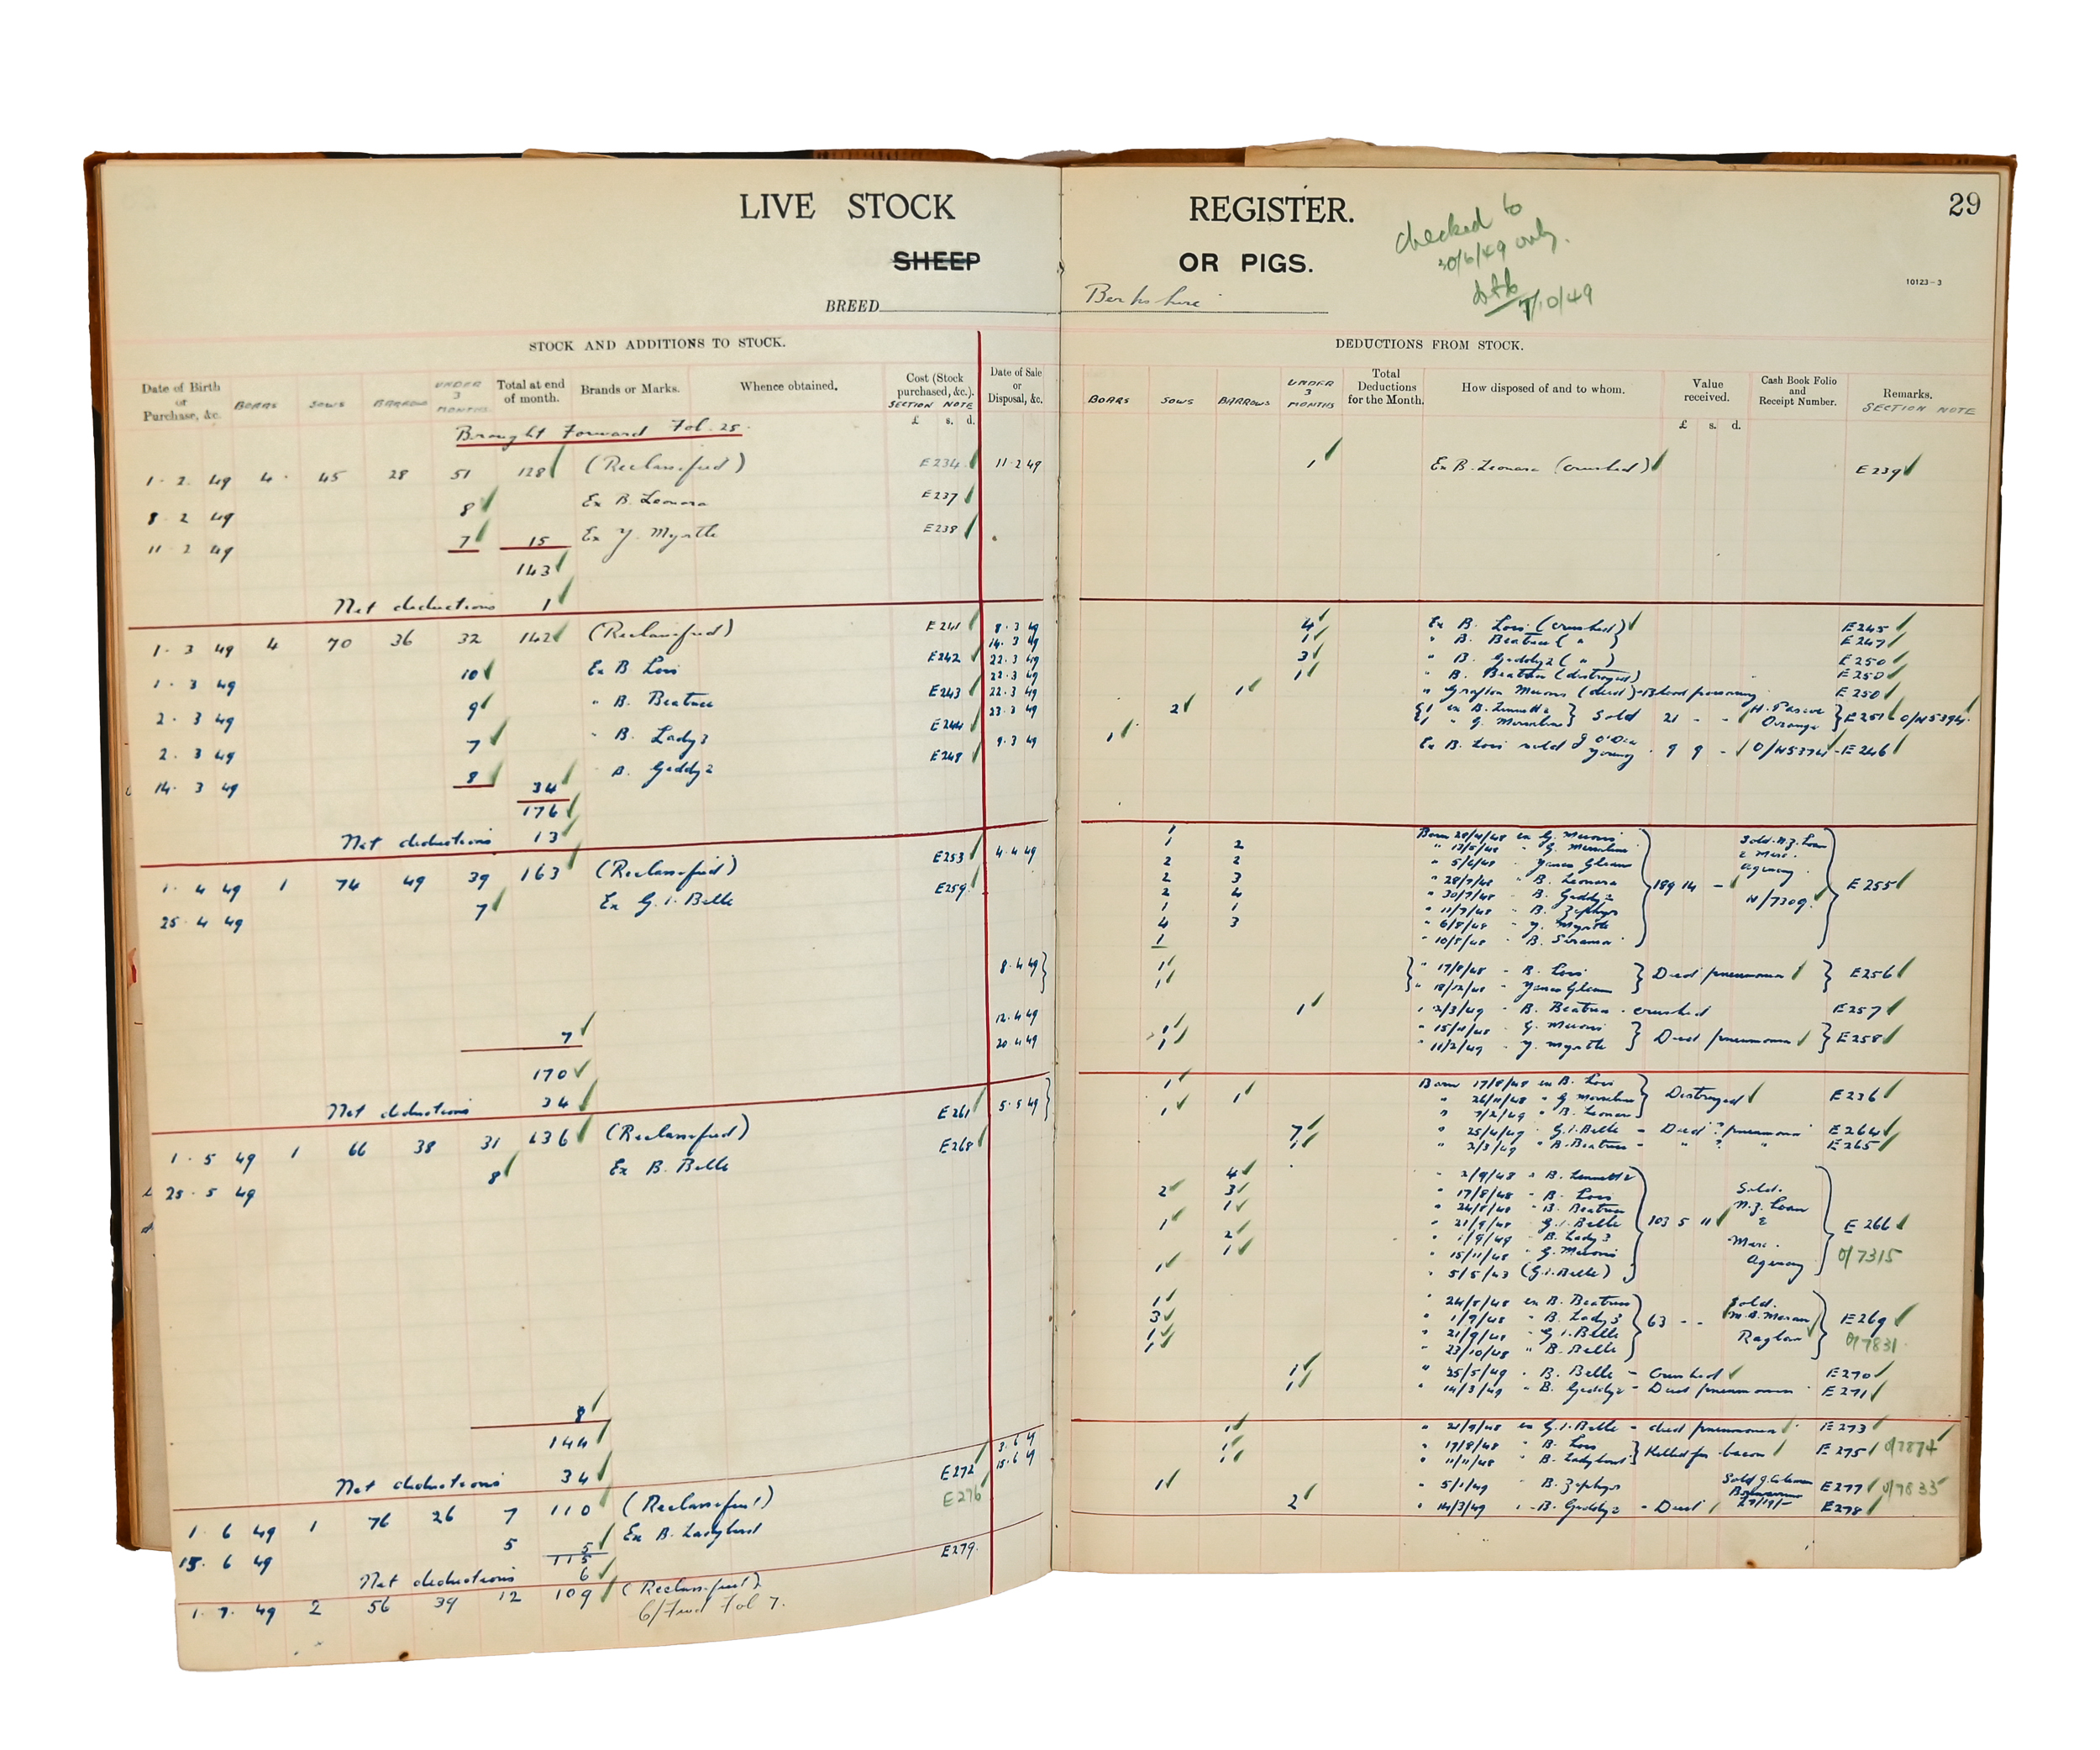 LIVE STOCK REGISTER. 29
SHEEP OR PIGS.
checked to
30/6/49 only.
7/10/49
10123-3
BREED Berkshire
STOCK AND ADDITIONS TO STOCK.
Date of Birth or Purchase, &c. BOARS SOWS BARROWS UNDER 3 MONTHS Total at end of month. Brands or Marks. Whence obtained. Cost (Stock purchased, &c.). SECTION NOTE £ s. d.
Brought Forward Fol. 25.
1. 2. 49 4. 45 28 51 128 (Reclassified) E234
8 2 49 8 Ex B. Leonora E237
11 2 49 7 15 Ex Y. Myrtle E238
143
Net deductions 1
1. 3 49 4 70 36 32 142 (Reclassified) E241
1. 3 49 10 Ex B. Lois E242
2. 3 49 9 " B. Beatrice E243
2. 3 49 7 " B. Lady 3 E244
14. 3 49 8 34 B. Geddy 2 E248
176
Net deductions 13
1. 4 49 1 74 49 39 163 (Reclassified) E253
25. 4 49 7 Ex G. 1. Belle E259
7
170
Net deductions 34
1. 5 49 1 66 38 31 136 (Reclassified) E261
25. 5 49 8 Ex B. Belle E268
8
144
Net deductions 34
1. 6 49 1 76 26 7 110 (Reclassified) E272
15. 6 49 5 5 Ex B. Ladybird E276
115
Net deductions 6
1. 7. 49 2 56 39 12 109 (Reclassified) E279
C/Fwd Fol 7.
DEDUCTIONS FROM STOCK.
Date of Sale or Disposal, &c. BOARS SOWS BARROWS UNDER 3 MONTHS Total Deductions for the Month. How disposed of and to whom. Value received. £ s. d. Cash Book Folio and Receipt Number. Remarks. SECTION NOTE
11 2 49 1 Ex B. Leonora (crushed) E239
8. 3 49 4 Ex B. Lois (crushed) E245
14. 3 49 1 " B. Beatrice ( " ) E247
22. 3 49 3 " B. Geddy 2 ( " ) E250
22. 3 49 1 " B. Beatrice (destroyed) E250
22. 3 49 1 " Grafton Merons (died) - Blood poisoning E250
23. 3 49 2 1 ex B. Linnett 2
1 " G. Mersline } Sold 21 - - Orange E251 O/N5394
9. 3 49 1 Ex B. Lois sold J. O'Dea Young 9 9 - O/N5374 - E246
4. 4 49 1 Born 20/4/48 ex G. Merons
1 2 " 13/5/48 " G. Mersline
2 2 " 5/6/48 " Yanco Gleam
2 3 " 28/7/48 " B. Leonora
2 4 " 30/7/48 " B. Geddy 2
1 1 " 11/7/48 " B. Zephyr
4 3 " 6/8/48 " Y. Myrtle
1 " 10/5/48 " B.
189 14 - Sold. N.Z. Loan & Merc. Agency. N/7309 E255
8. 4 49 1 " 17/8/48 - B. Lois
1 " 18/12/48 - Yanco Gleam } Died pneumonia E256
12. 4 49 1 " 2/3/49 - B. Beatrice - crushed E257
20 4 49 1 " 15/11/48 - G. Merons
1 " 11/2/49 - Y. Myrtle } Died pneumonia E258
5. 5 49 1 Born 17/8/48 ex B. Lois
1 " 26/11/48 " G. Mersline
1 " 7/2/49 " B. Leonora } Destroyed E236
7 " 25/4/49 " G.1. Belle - Died ? pneumonia E264
1 " 2/3/49 " B. Beatrice - " ? " E265
4 " 2/9/48 " B. Linnett 2
2 3 " 17/8/48 - B. Lois
1 " 24/8/48 " B. Beatrice
1 " 21/9/48 " G.1. Belle
2 " 1/9/49 " B. Lady 3
1 " 15/11/48 " G. Merons
1 " 5/5/43 (G.1. Belle)
103 5 11 Sold. N.Z. Loan & Merc. Agency E266
O/7315
1 " 24/8/48 ex B. Beatrice
3 " 1/9/48 " B. Lady 3
1 " 21/9/48 " G.1. Belle
1 " 23/10/48 " B. Belle
63 - - Sold. M.B. Moran Raglan E269
O/7831
1 " 25/5/49 " B. Belle - Crushed E270
1 " 14/3/49 " B. Geddy 2 - Died pneumonia E271
3. 6 49 1 " 21/9/48 ex G.1. Belle - died pneumonia E273
15. 6 49 1 " 17/8/48 " B. Lois
1 " 11/11/48 " B. Ladybird } Killed for bacon E275 O/7874
1 " 5/1/49 " B. Zephyr Sold E277 O/7835
2 " 14/3/49 " B. Geddy 2 - Died E278